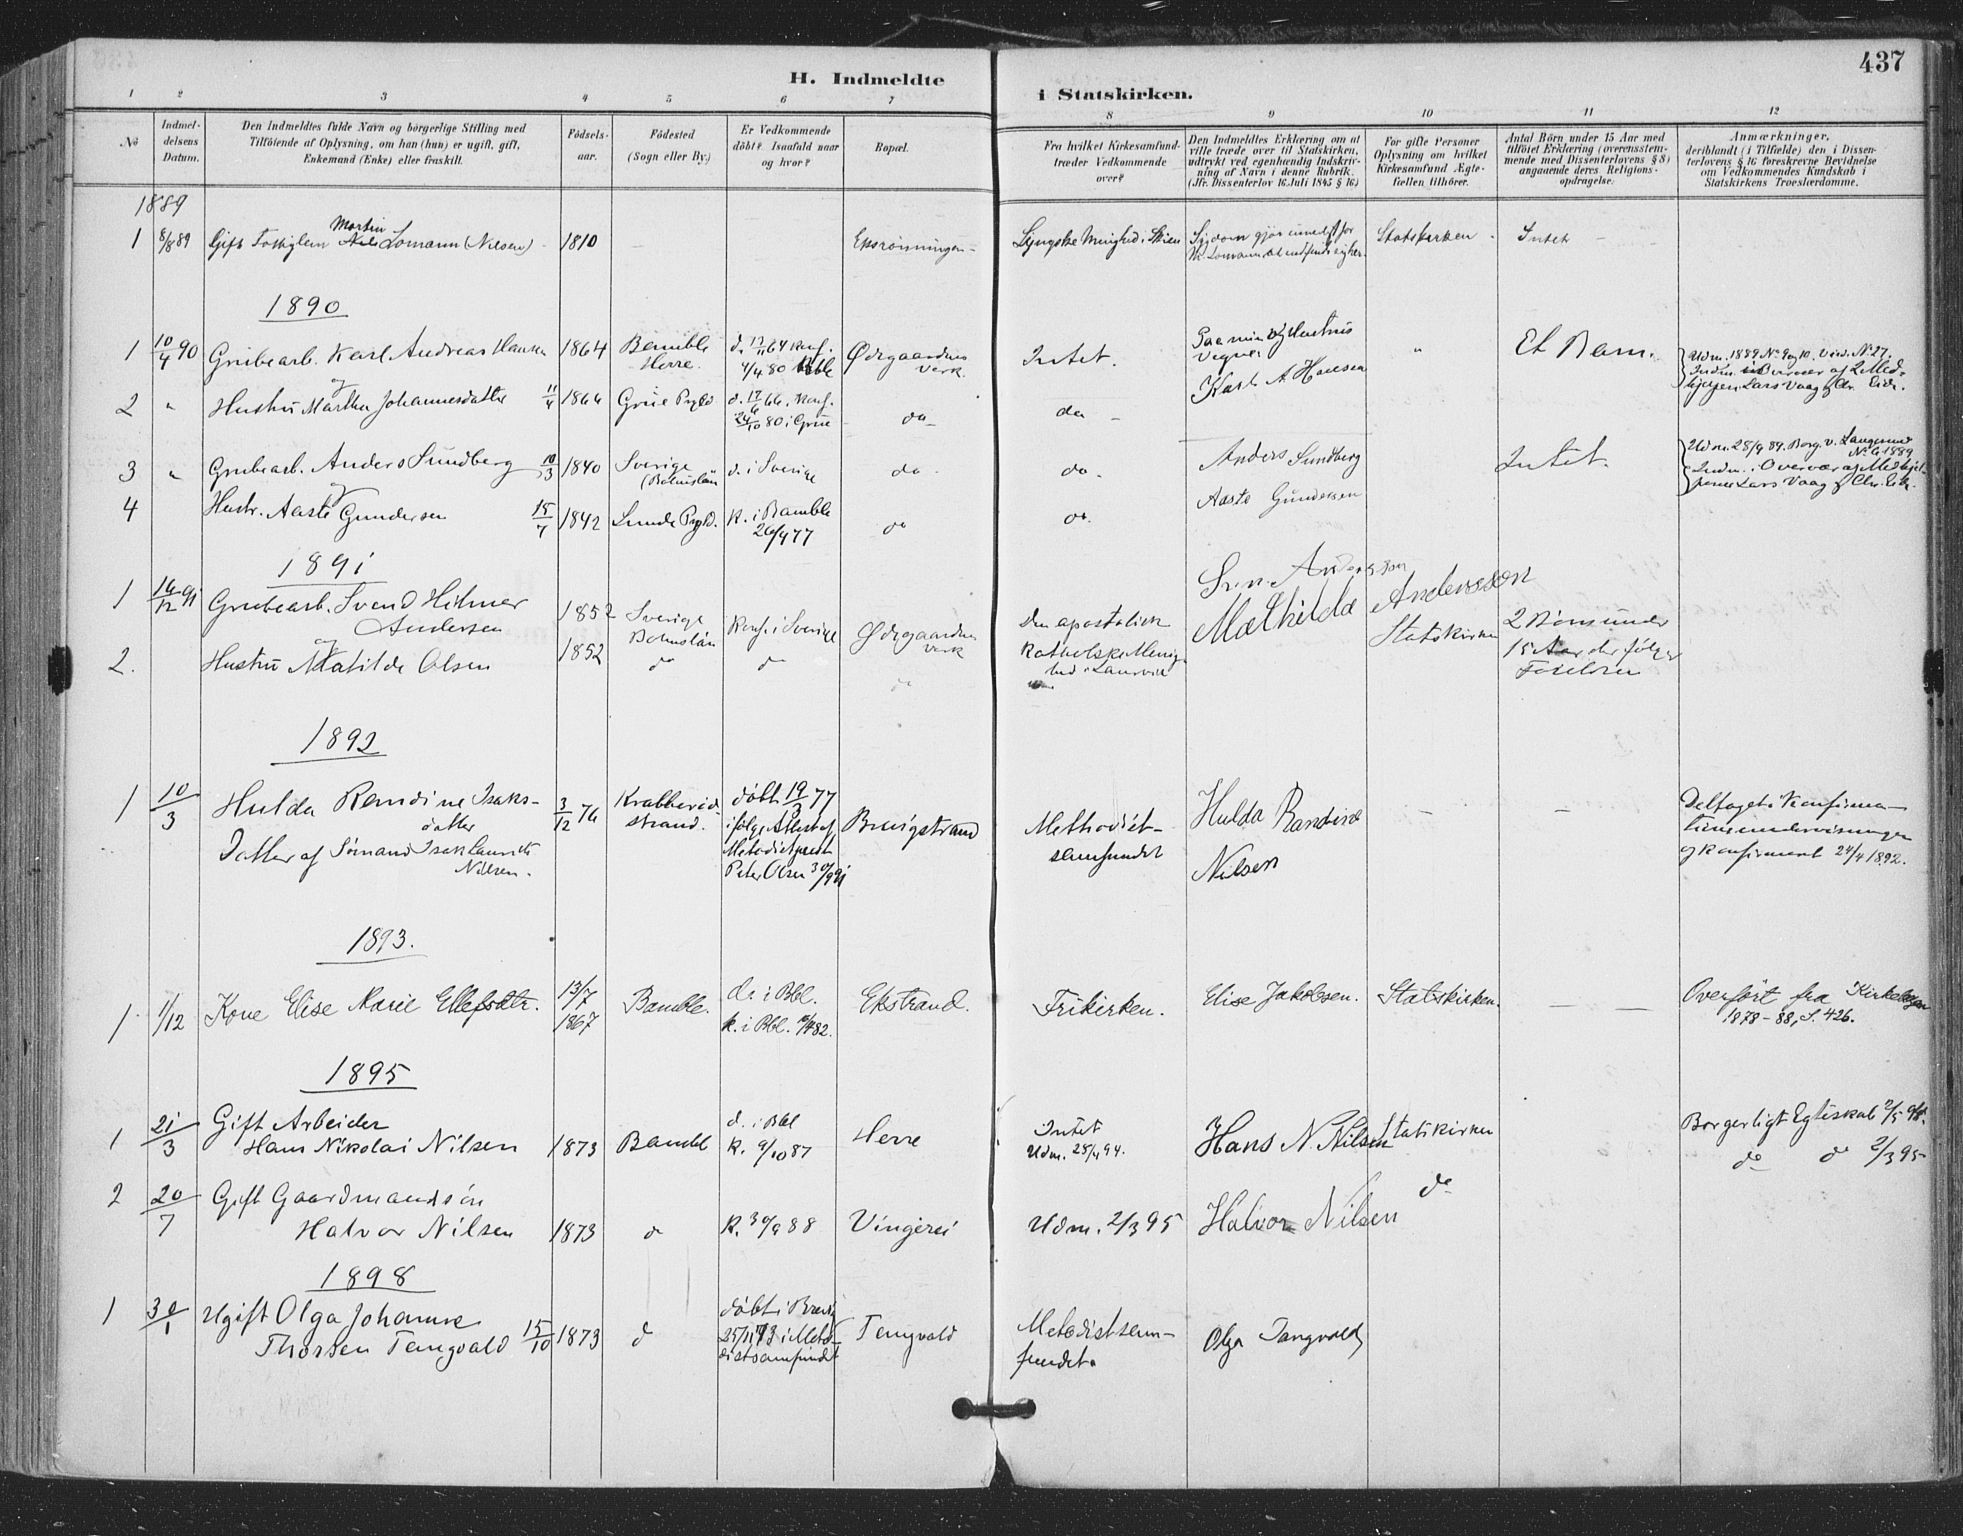 437
H. Indmeldte
i Statskirken.
1 2 3 4 5 6 7 8 9 10 11 12
No
Indmel-
delsens
Datum.
Den Indmeldtes fulde Navn og borgerlige Stilling med
Tilföiende af Oplysning, om han (hun) er ugift, gift,
Enkemand (Enke) eller fraskilt.
Födsels-
aar.
Födested
(Sogn eller By.)
Er Vedkommende
döbt? Isaafald naar
og hvor?
Bopæl.
Fra hvilket Kirkesamfund
træder Vedkommende
over?
Den Indmeldtes Erklæring om at
ville træde over til Statskirken,
udtrykt ved egenhændig Indskriv-
ning af Navn i denne Rubrik.
(Jfr. Dissenterlov 16 Juli 1845 § 16)
For gifte Personer
Oplysning om hvilket
Kirkesamfund Ægte-
fællen tilhörer.
Antal Börn under 15 Aar med
tilföiet Erklæring (overensstem-
mende med Dissenterlovens § 8)
angaaende deres Religions-
opdragelse.
Anmærkninger,
deriblandt (i Tilfælde) den i Dissen-
terlovens § 16 foreskrevne Bevidnelse
om Vedkommendes Kundskab i
Statskirkens Troeslærdomme.
1889
1 8/8 89 Gift Martin Lomann (Nilsen) 1810 — Statskirken Intet —
1890
1 10/4 90 Grubearb. Karl Andreas Hansen 1864 Bamble
Herre.
Ødegaardens
Verk.
Intet.
Vegne.
Karl A Hansen
" Et Barn.
2 " Hustru Martha Johannesdatter 11/4 1864 Grue Prgld do do
3 " Grubearb. Anders Sundberg 10/3 1840 Sverige
(Bohuslän
d. i Sverige do do. Anders Sundberg Intet.
4 Hustr. Aaste Gundersen 15/7 1842 Lunde Prgld. k. i Bamble
26/9 77
do do. Aaste Gundersen
1891
1 16/12 91 Grubearb. Svend Hilmer
Andersen
1852 Sverige
Bohuslän
Konf. i Sverige Ødegaardens
Verk
Den apostolisk
Katholske Menig-
hed i Laurvik
Andersson
Mathilda Andersson
Statskirken
2 Börn under
15 Aar der følger
Forældrene
2. og Hustru Matilde Olsen 1852 do do do
1892
1 10/3 Hulda Randine Isaks-
datter
Datter af Sømand Isak Laurits
Nilsen.
3/12 76
strand.
döbt 19/3 77
ifølge Attest af
Metodistprest
Peter Olsen 30/9 91
Brevigstrand
Methodist-
samfundet
Hulda Randine
Nilsen
— —
Deltaget i Konfirma-
tionsundervisningen
og konfirmeret 24/4 1892.
1893.
1 1/12 Kone Elise Marie Ellefsdtr. 13/7
1867
Bamble. d. i Bbl.
k. i Bbl.
Ekstrand. Frikirken. Elise Jakobsen. Statskirken. —
Overført fra Kirkebogen
1878-88, S. 426.
1895
1 21/3 Gift Arbeider
Hans Nikolai Nilsen
1873 Bambl d. i Bbl
k. 9/10 87
Herre Intet
Udm. 25/4 94.
Hans N. Nilsen Statskirken
Borgerligt Egteskab
do do 2/3 95
2 20/7 Gift Gaardmandsøn
Halvor Nilsen
1873 do k. 30/9 88 Vingerei Udm. 2/3 95 Halvor Nilsen do
1898
1 30/1 Ugift Olga Johanne
Thorsen Tangvald
15/10 1873 do döbt i Brevig
i Meto-
distsamfundet
Tangvald
Metodistsam-
fundet.
Olga Tangvald